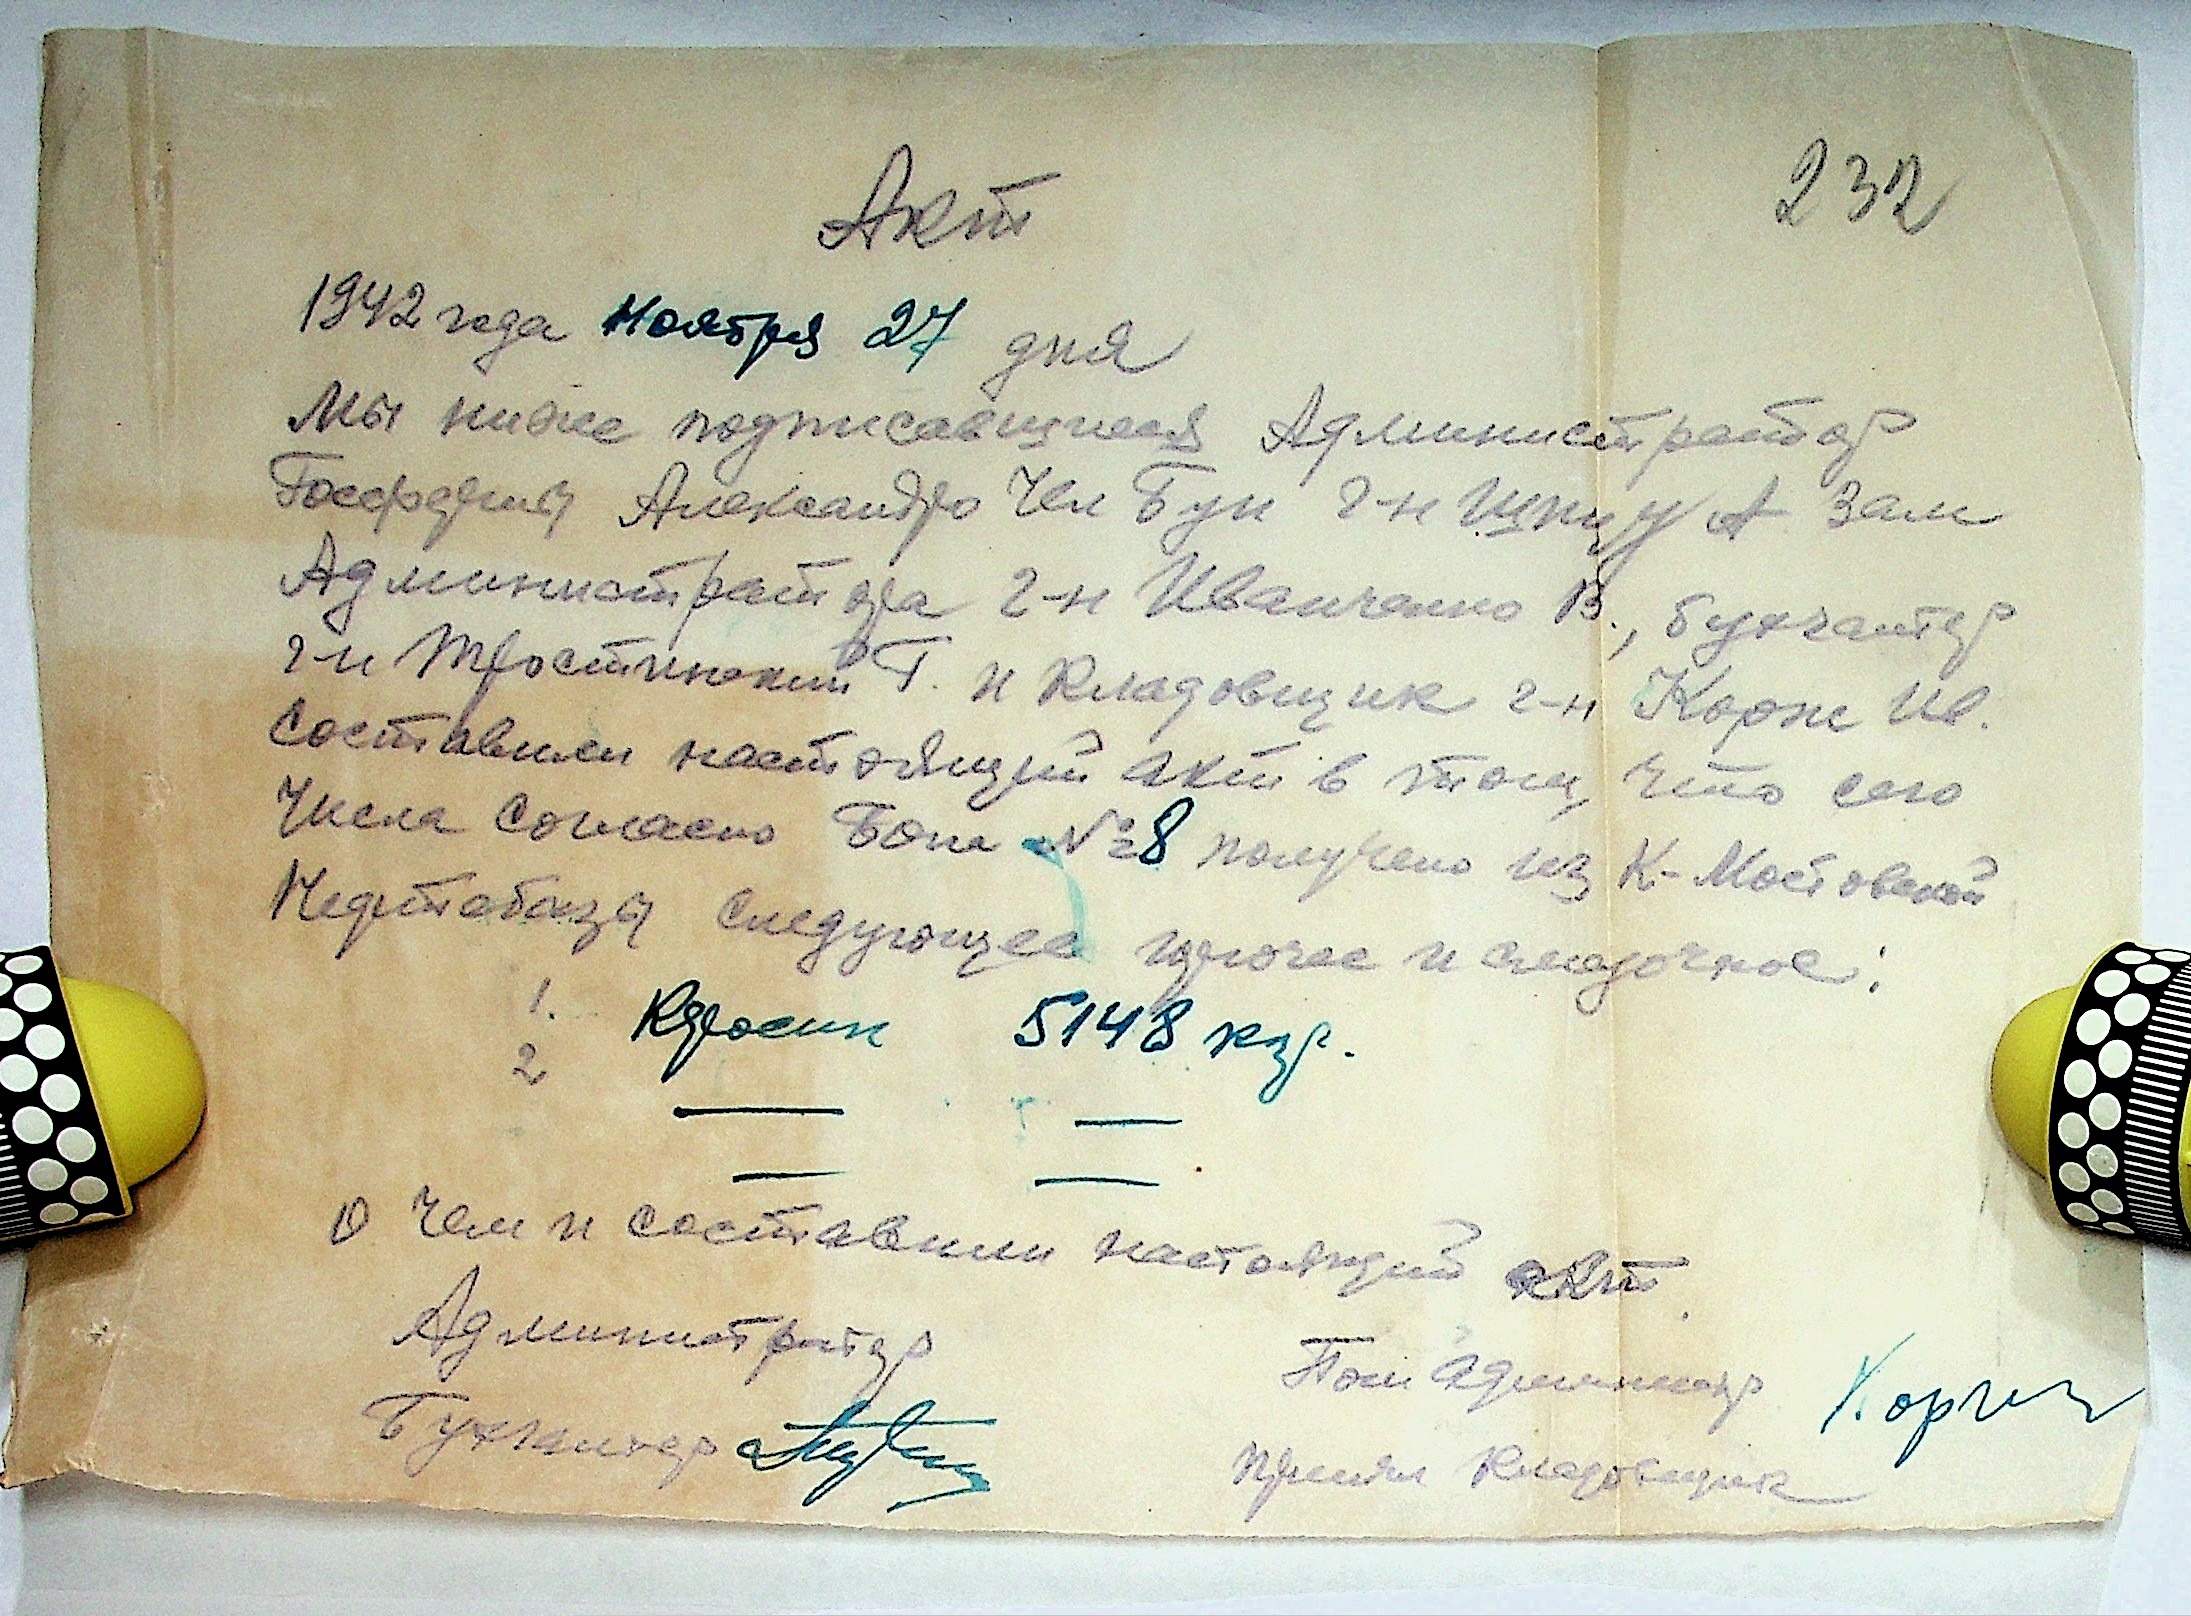 232
Акт
1942 года Ноября 27 дня
Мы ниже подписавшиеся Администратор
Госфермы Александро Чел Бун г-н Щпиу А Зам
Администратора г-н Иванченко В., бухгалтер
г-н Тростинский Т. и Кладовщик г-н Корж Ив.
составили настоящий акт в том, что сего
Числа согласно Бона №8 получено из К-Мостовской
Нефтебазы следующее горючее и смазочное:
1. Керосин 5148 кгр.
2
О чем и составили настоящий акт.
Администратор
Пом Администр
Корж
Бухгалтер
Принял Кладовщик